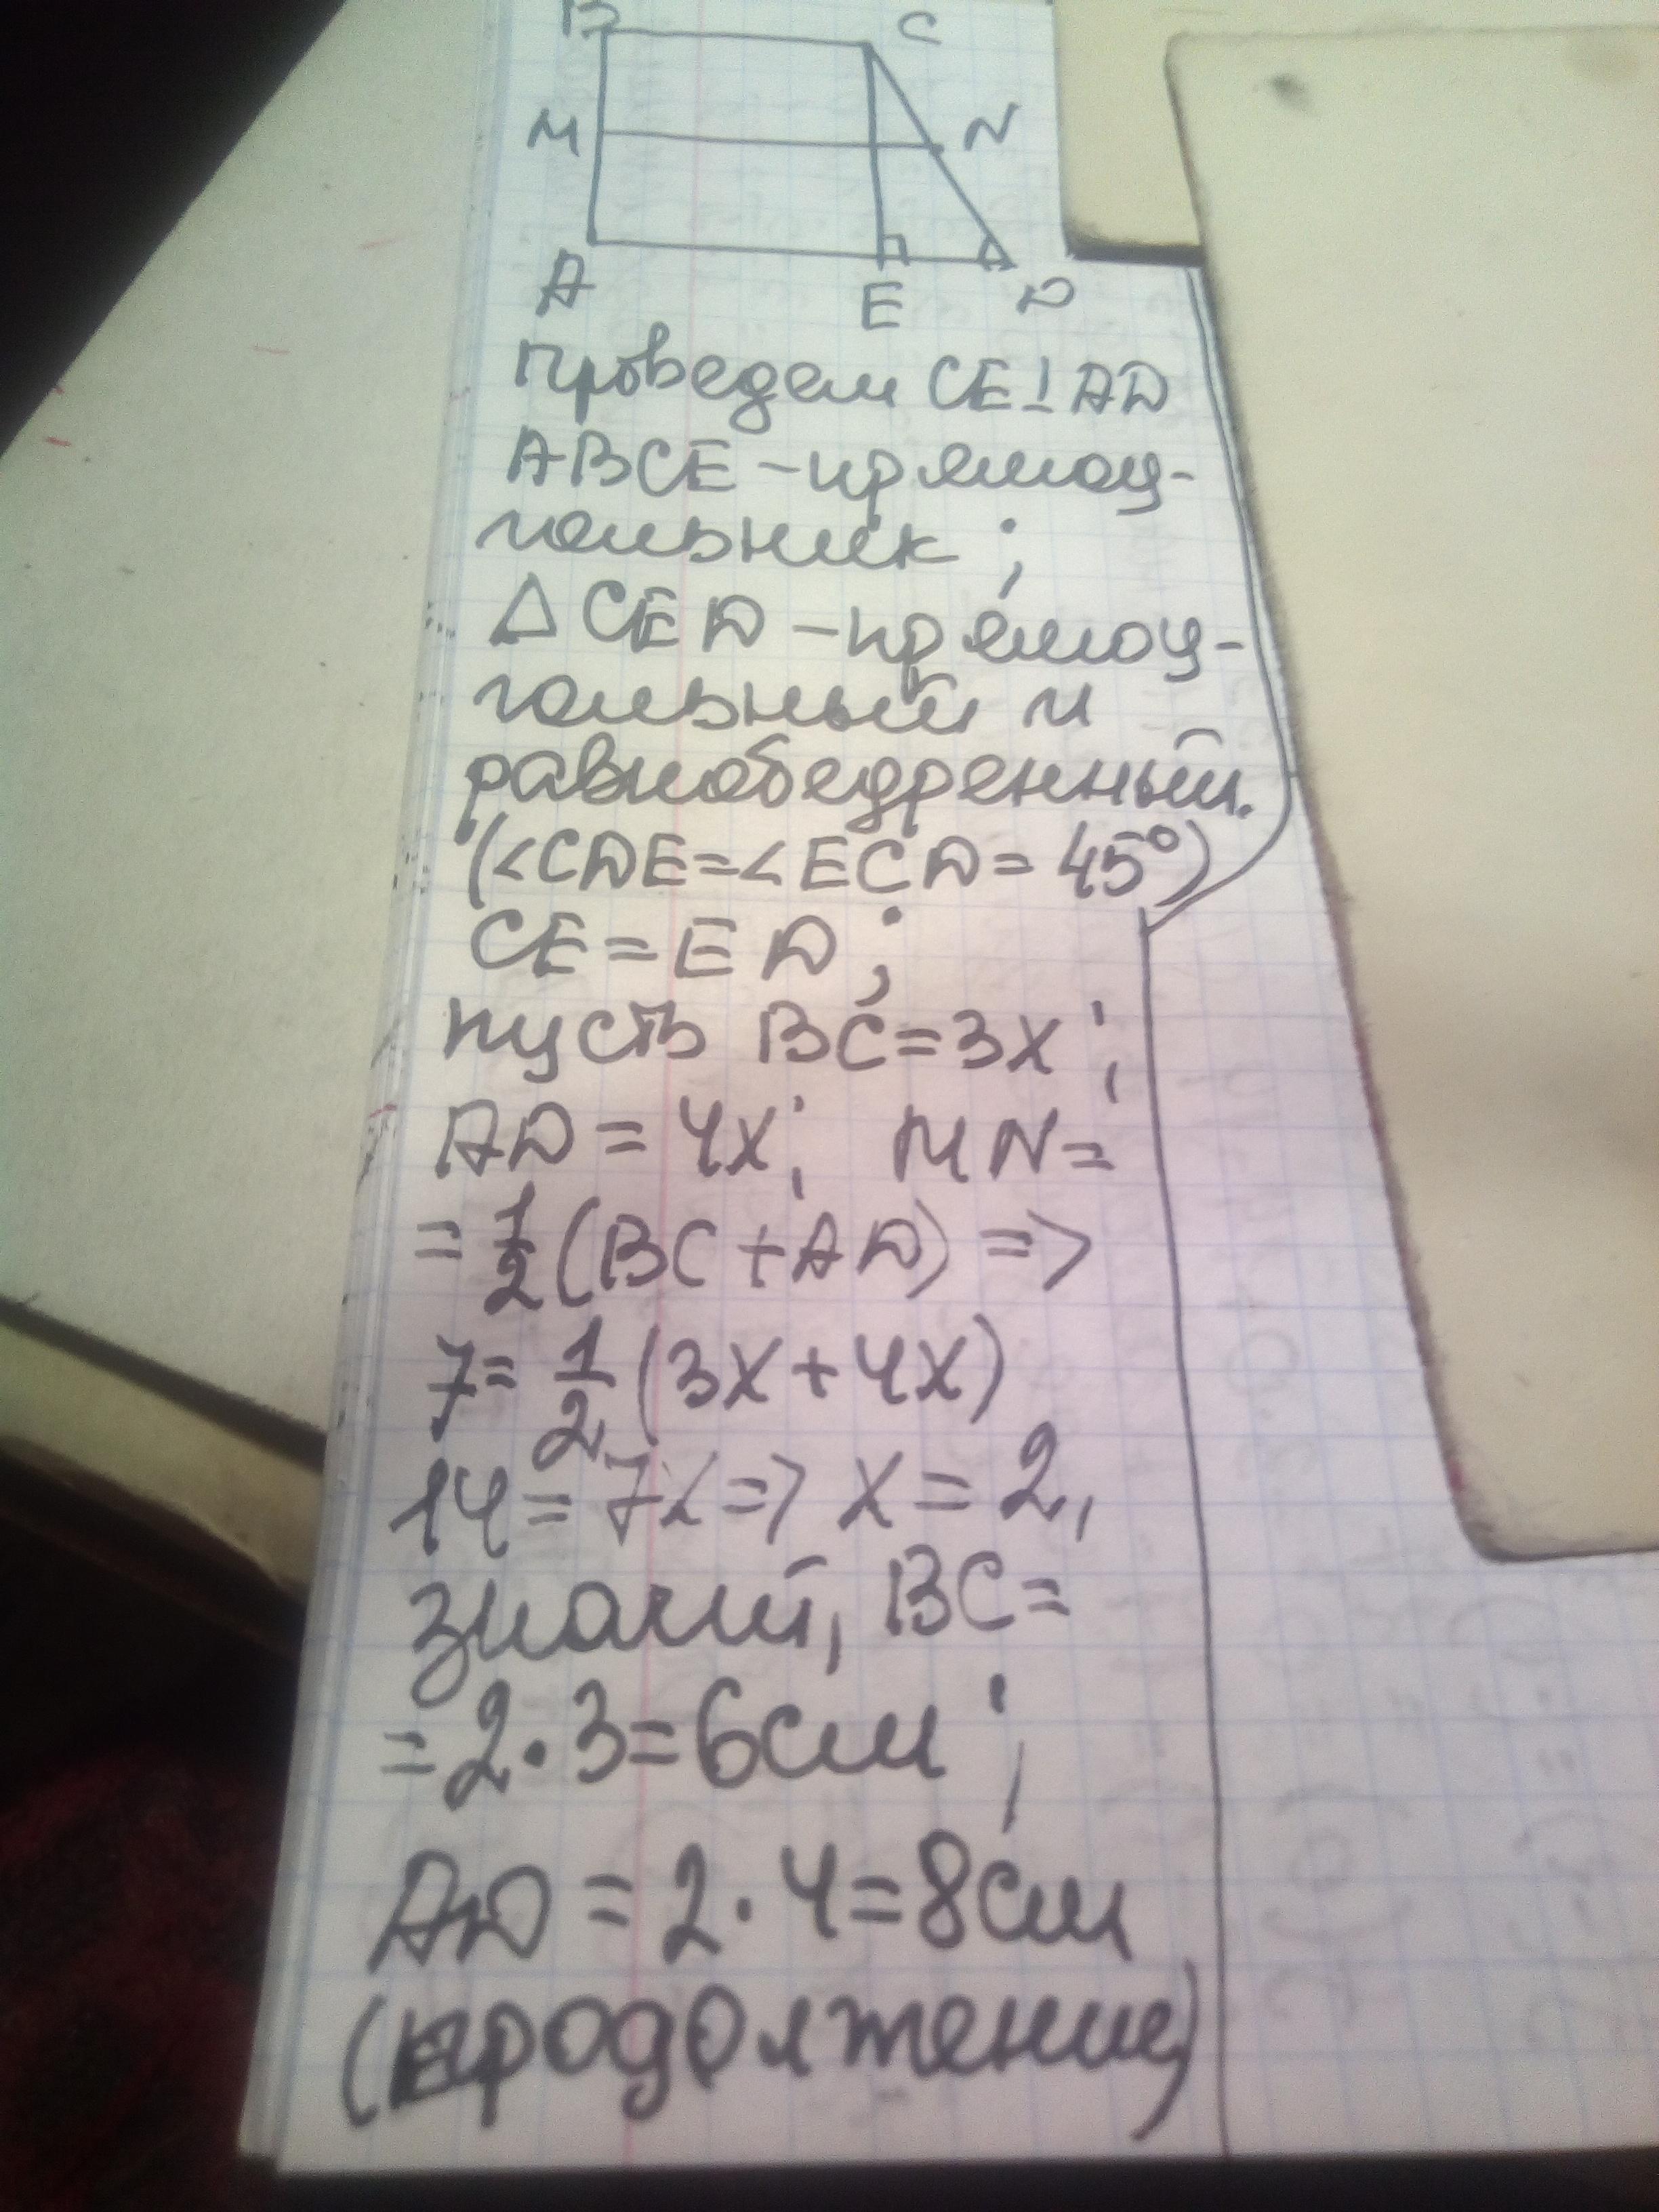 B C
M N
A E D
Проведем CE⊥AD
ABCE – прямоу-
гольник ;
△ CED – прямоу-
гольный и
равнобедренный.
(<CDE=<ECD= 45°)
CE=ED;
пусть BC=3x ;
AD = 4x; MN=
= 1/2 (BC+AD) =>
7= 1/2 (3x+4x)
14= 7x => x = 2,
значит, BC=
=2·3=6см ;
AD = 2·4=8см
(продолжение)